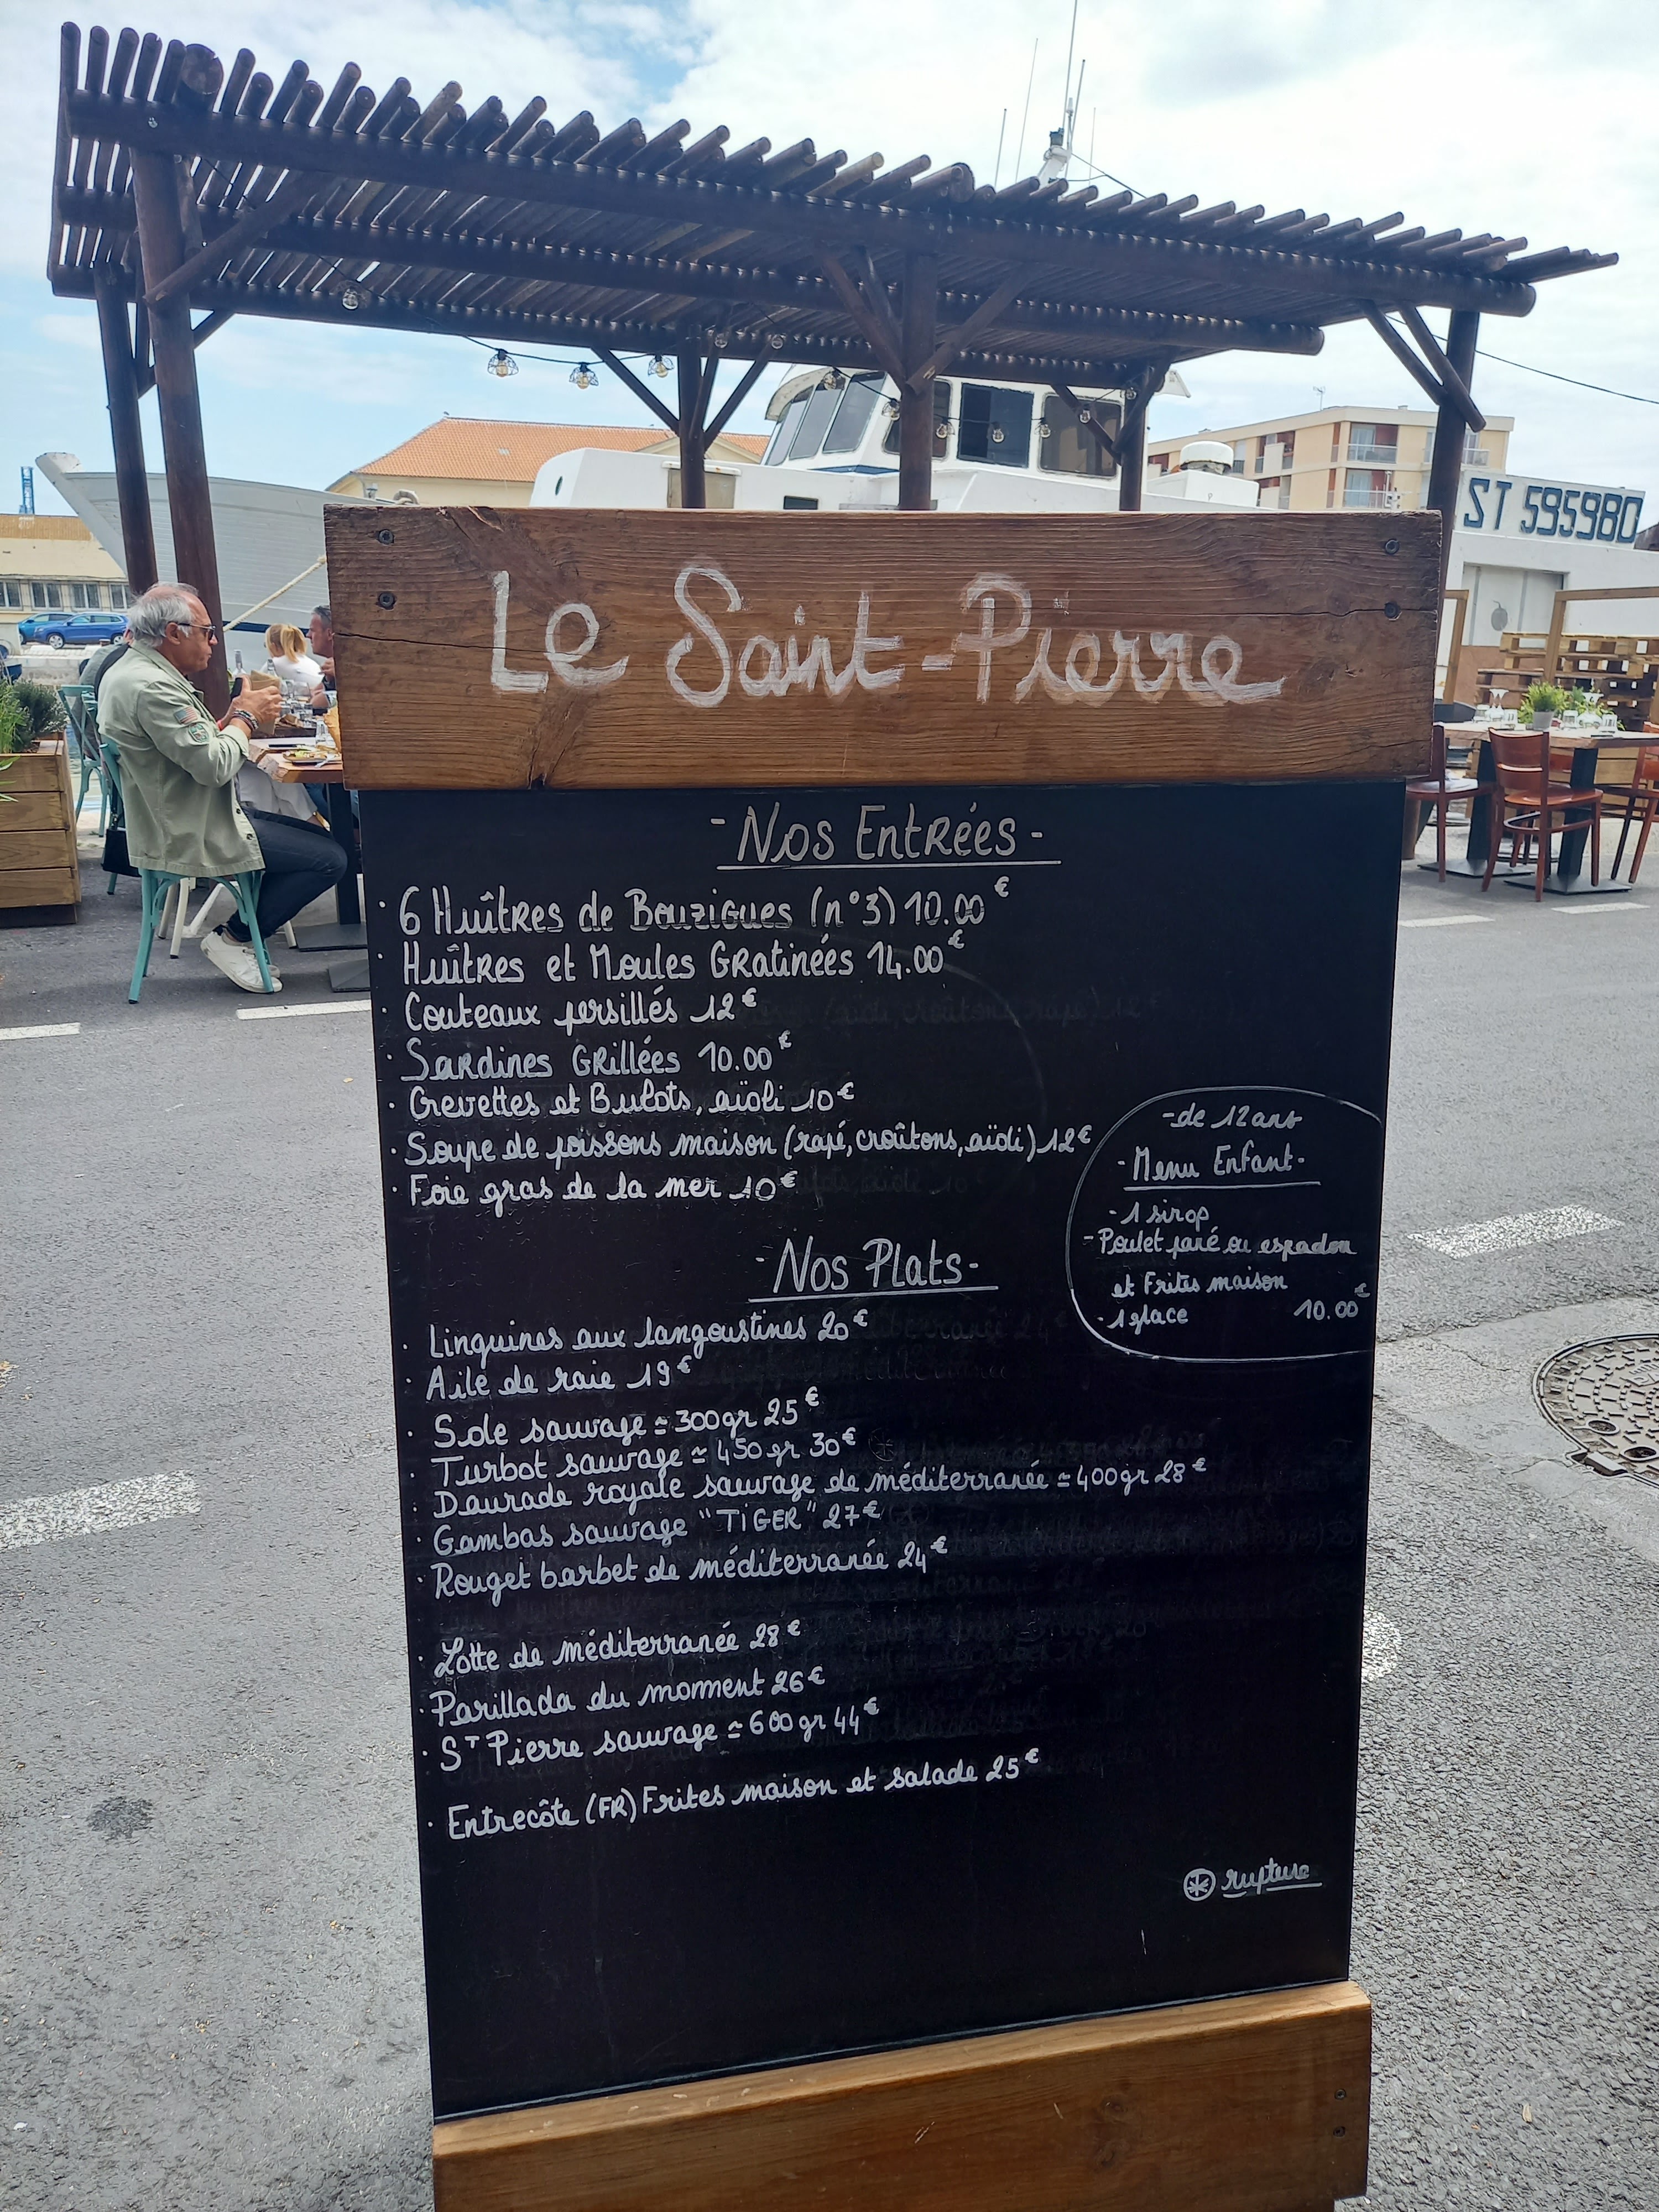 ST 595980
Le Saint-Pierre
- Nos Entrées -
· 6 Huîtres de Bouzigues (n°3) 10.00€
· Huîtres et Moules Gratinées 14.00€
· Couteaux persillés 12€
· Sardines Grillées 10.00€
· Crevettes et Bulots, aïoli 10€
· Soupe de poissons maison (rapé, croûtons, aïoli) 12€
· Foie gras de la mer 10€
- de 12 ans
- Menu Enfant -
- 1 sirop
- Poulet pané ou espadon
et Frites maison
- 1 glace 10.00€
- Nos Plats -
· Linguines aux langoustines 20€
· Aile de raie 19€
· Sole sauvage ≃ 300gr 25€
· Turbot sauvage ≃ 450gr 30€
· Daurade royale sauvage de méditerranée ≃ 400gr 28€
· Gambas sauvage "TiGER" 27€
· Rouget barbet de méditerranée 24€
· Lotte de méditerranée 28€
· Parillada du momment 26€
· ST Pierre sauvage ≃ 600gr 44€
· Entrecôte (FR) Frites maison et salade 25€
⊛ rupture